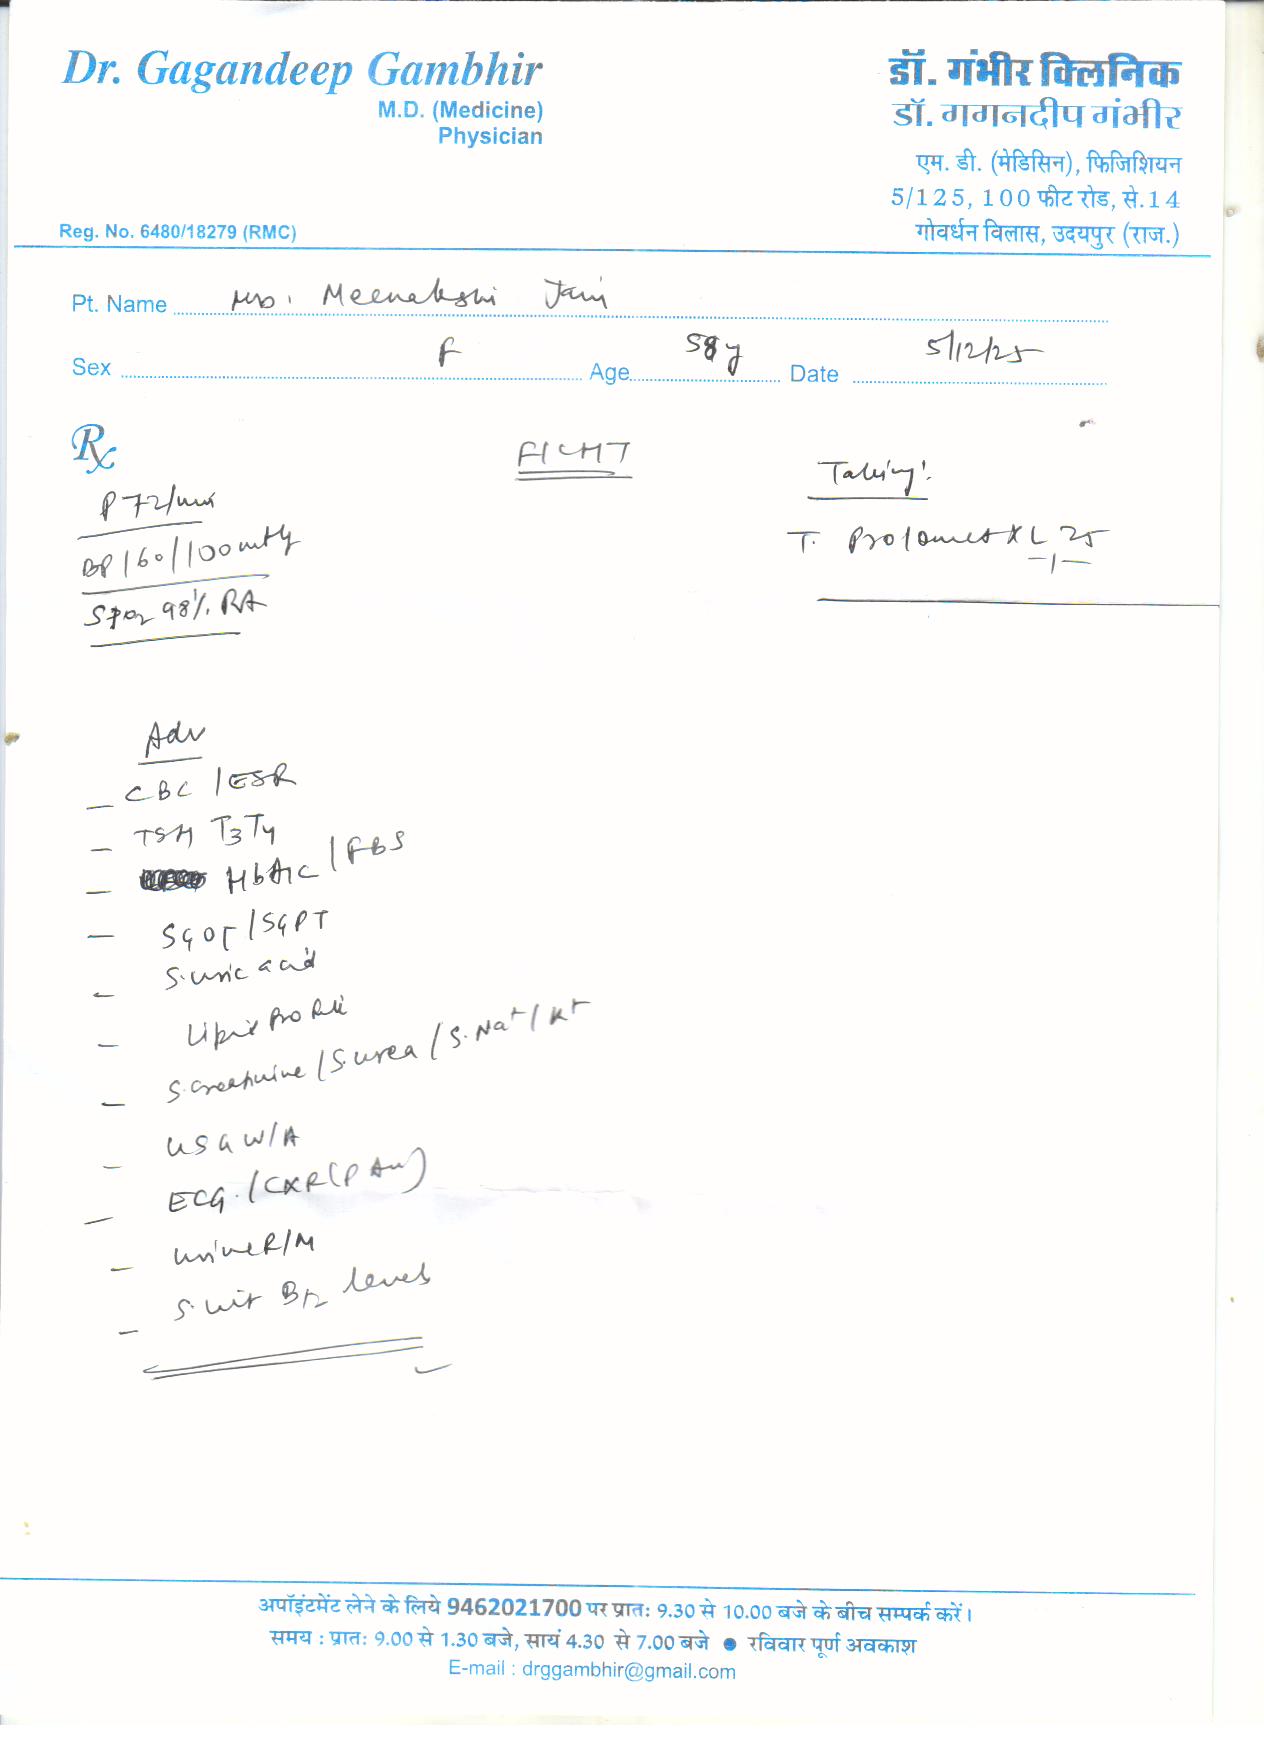 Dr. Gagandeep Gambhir
M.D. (Medicine)
Physician
Reg. No. 6480/18279 (RMC)
डॉ. गंभीर क्लिनिक
डॉ. गगनदीप गंभीर
एम. डी. (मेडिसिन), फिजिशियन
5/125, 100 फीट रोड, से.14
गोवर्धन विलास, उदयपुर (राज.)
Pt. Name Mrs. Meenakshi Jain
Sex F Age 58y Date 5/12/25
Rx
P 72/min
BP 160/100 mmHg
SpO2 98% RA
Taking:
T. Prolomet XL 25
-1-
Adv
- CBC / ESR
- TSH T3 T4
- HbA1c / FBS
- SGOT / SGPT
- S. uric acid
- Lipid Profile
- S. Creatinine / S. urea / S. Na+ / K+
- USG W/A
- ECG. / CXR (P A view)
- Urine R/M
- S. Vit B12 levels
अपॉइंटमेंट लेने के लिये 9462021700 पर प्रातः 9.30 से 10.00 बजे के बीच सम्पर्क करें।
समय : प्रातः 9.00 से 1.30 बजे, सायं 4.30 से 7.00 बजे ● रविवार पूर्ण अवकाश
E-mail : drggambhir@gmail.com